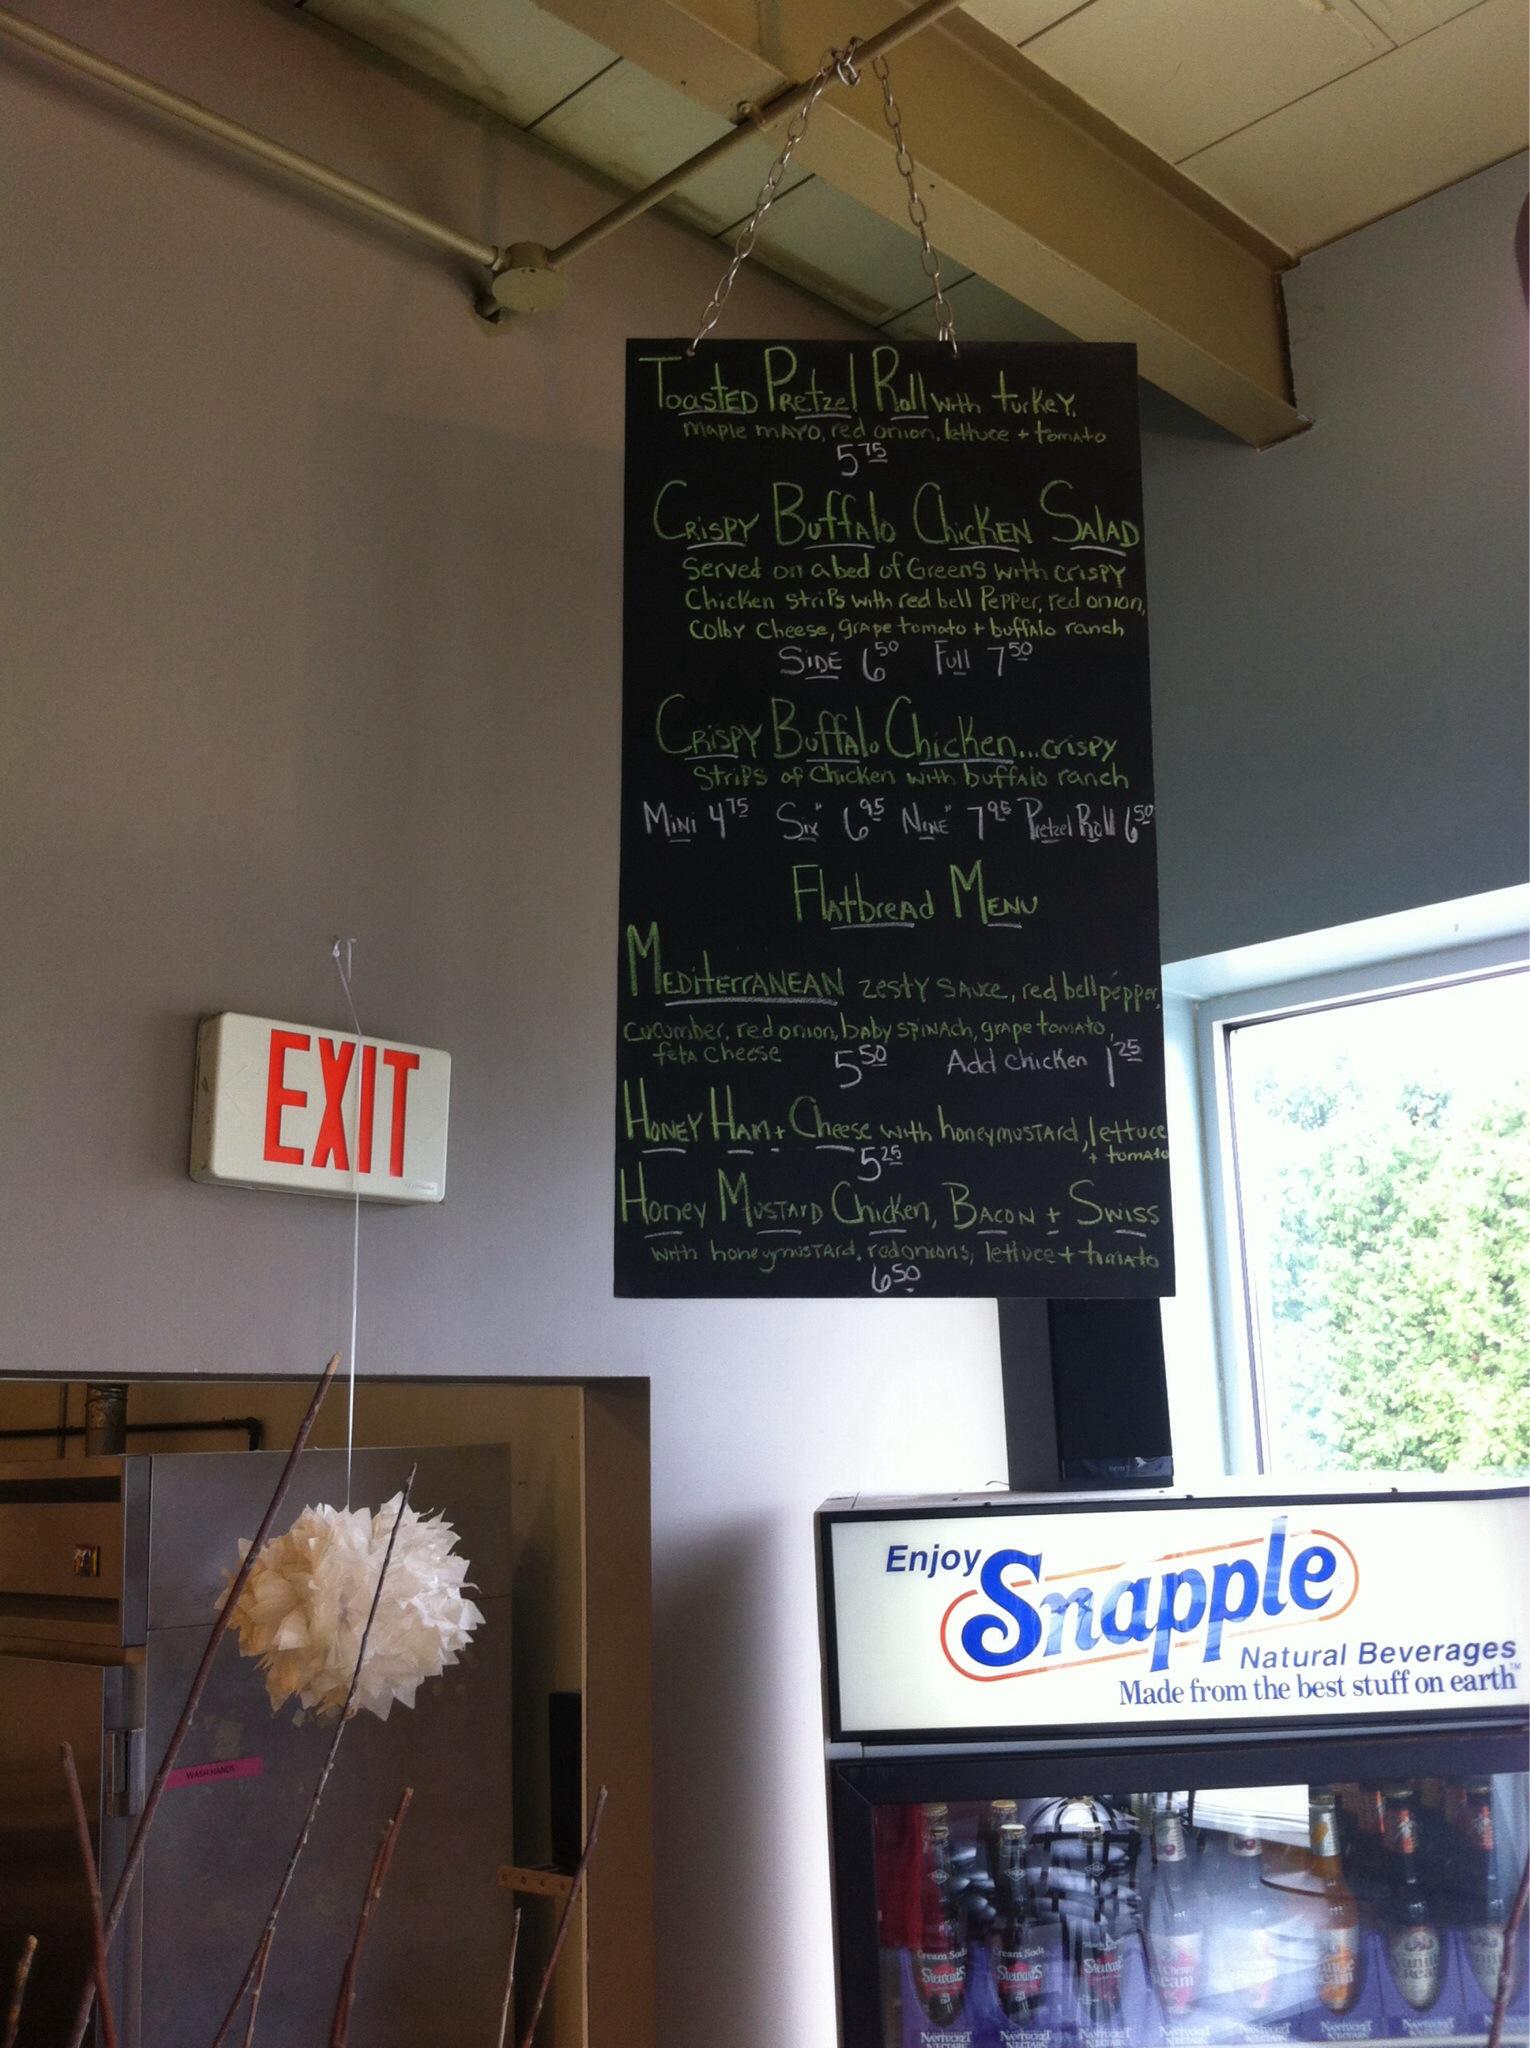 Toasted Pretzel Roll with turkey,
maple mayo, red onion, lettuce + tomato
5 75
Crispy Buffalo Chicken Salad
Served on a bed of Greens with crispy
Chicken strips with red bell Pepper, red onion,
Colby Cheese, grape tomato + buffalo ranch
Side 6 50 Full 7 50
Crispy Buffalo Chicken...crispy
Strips of Chicken with buffalo ranch
Mini 4 75 Six" 6 95 Nine" 7 95 Pretzel Roll 6 50
Flatbread Menu
Mediterranean zesty sauce, red bell pepper,
cucumber, red onion, baby spinach, grape tomato,
feta cheese 5 50 Add Chicken 1 25
Honey Ham + Cheese with honeymustard, lettuce
+ tomato
5 25
Honey Mustard Chicken, Bacon + Swiss
with honeymustard, red onions, lettuce + tomato
6 50
EXIT
Enjoy
Snapple
Natural Beverages
Made from the best stuff on earth™
WASH HANDS
Cream Soda Cream Soda
Stewart's Stewart's Stewart's
NANTUCKET NANTUCKET NANTUCKET NANTUCKET NANTUCKET NANTUCKET NANTUCKET
NECTARS NECTARS NECTARS NECTARS NECTARS NECTARS NECTARS